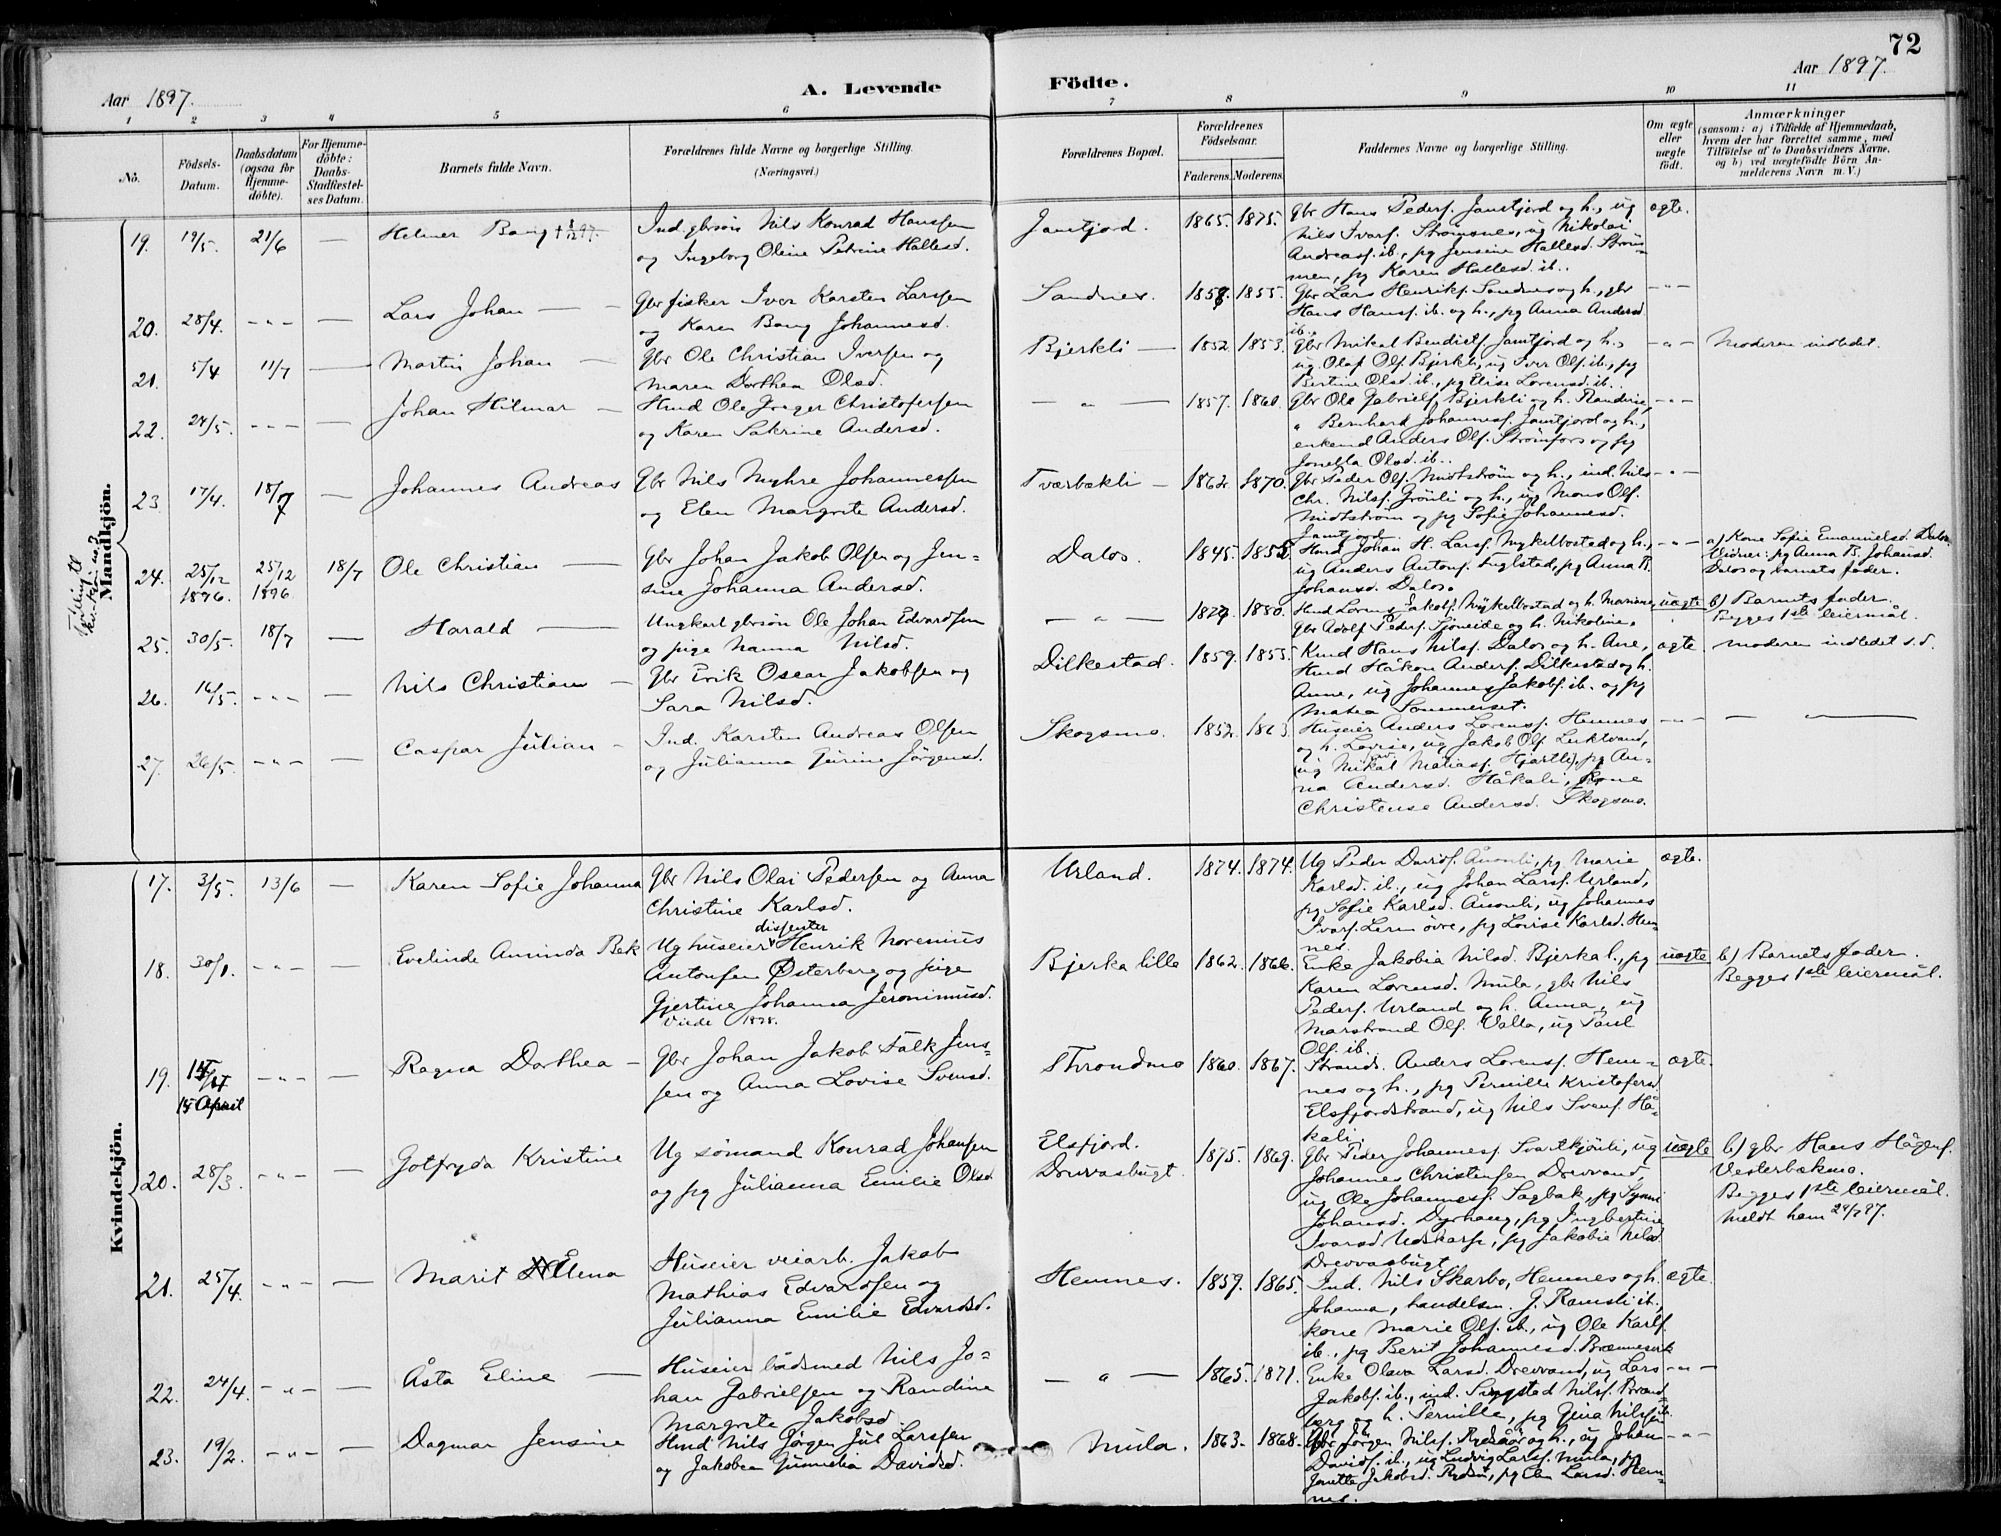 72
Aar 1897.
A. Levende
Födte.
Aar 1897.
1 2 3 4 5 6 7 8 9 10 11
No.
Födsels-
Datum.
Daabsdatum
(ogsaa for
Hjemme-
döbte).
For Hjemme-
döbte:
Daabs-
Stadfæstel-
ses Datum.
Barnets fulde Navn.
Forældrenes fulde Navne og borgerlige Stilling.
(Næringsvei.)
Forældrenes Bopæl.
Forældrenes
Födselsaar.
Faderens. Moderens.
Faddernes Navne og borgerlige Stilling.
Om ægte
eller
uægte
födt.
Anmærkninger
(saasom: a) i Tilfælde af Hjemmedaab,
hvem der har forrettet samme, med
Tilföielse af to Daabsvidners Navne,
og b) ved uægtefödte Börn An-
melderens Navn m. V.)
Mandkjön.
19. 19/5. 21/6 — Helmer Bang
Ind. gbrsön Nils Konrad Hanssen
og Ingeborg Oline Petrine Hallesd.
Jamtjord. 1865. 1875.
gbr Hans Peders. Jamtjord og h., ug
Nils Ivars. Strömsnes, ug Nikolai
Andreass. ib., pg Jensine Hallesd. Ström-
men, pg Karen Hallesd. ib..
ægte.
20. 28/4. -"- — Lars Johan —
Gbr fisker Iver Karsten Larssen
og Karen Bang Johannesd.
Sandnes. 1855.
Gbr Lars Henriks. Sandnes og h., gbr
Hans Hanss. ib. og h., pg Anna Andersd
ib..
-"-
21. 5/4 11/7 — Martin Johan —
Gbr Ole Christian Iversen og
Maren Dorthea Olsd.
Bjerkli — 1852. 1853.
Gbr Mikal Bendikts. Jamtjord og h.,
ug. Olaf Ols. Bjerkli, ug Iver Ols. ib., pg
Bertine Olsd. ib., pg Elise Lorensd. ib..
-"- Moderen indledet.
22. 24/5. -"- — Johan Hilmar —
Hmd Ole Greger Christofersen
og Karen Sakrine Andersd.
— " — 1857. 1860.
Gbr Ole Gabriels. Bjerkli og h. Randine,
" Bernhard Johanness. Jamtjord og h.,
enkemd Anders Ols. Strömfors og pg
Jonetta Olsd. ib..
-"-
23. 17/4. 18/7 — Johannes Andreas
Gbr Nils Myhre Johannessen
og Elen Margrete Andersd.
Tværbækli — 1862. 1870.
Gbr Peder Ols. Midtström og h., ind. Nils
Chr. Nilss. Grönli og h., ug Mons Ols.
Midtström og pg Sofie Johannesd.
Jamtjord.
-"-
24. 25/12 1896. 25/12 1896 18/7 Ole Christian —
Gbr Johan Jakob Olsen og Jen-
sine Johanna Andersd.
Dalos. 1845. 1855.
Hmd Johan H. Lars. Mykelbostad og h.,
ug Anders Antons. Fuglstad, pg Anna B.
Johansd. Dalos.
-"-
a) Kone Sofie Emanuelsd. Dalos
Vidner: pg Anna B. Johansd.
Dalos og barnets fader.
25. 30/5. 18/7 — Harald —
Ungkarl gbrsön Ole Johan Edvardsen
og pige Hanna Nilsd.
— " — 1880.
Hmd Lorens Jakobs. Mykelbostad og h. Mariane,
Gbr Adolf Peders. Sjöneide og h. Nikoline.
uægte
b) Barnets fader.
Begges 1ste leiermål.
26. 16/5. -"- — Nils Christian —
Gbr Erik Oscar Jakobsen og
Sara Nilsd.
Dilkestad. 1859. 1855.
Kmd Hans Nilss. Dalos og h. Ane,
Hmd Håkon Anders. Dilkestad og h.
Anne, ug Johannes Jakobs. ib. og pg
Matea Sommerset.
ægte Moderen indledet s.d.
27. 26/5. -"- — Caspar Julian —
Ind. Karsten Andreas Olsen
og Julianna Gurine Jörgensd.
Skogsmo. 1852. 1863.
Huseier Anders Lorenss. Hemnes
og h. Lovise, ug Jakob Ols. Luktvand,
ug Mikal Matiass. Hjartli, pg An-
na Andersd. Håkali, kone
Christense Andersd. Skogsmo.
-"- — " —
Kvindekjön.
17. 3/5. 13/6 — Karen Sofie Johanna
Gbr Nils Olai Pedersen og Anna
Christine Karlsd.
Urland. 1874. 1874.
Ug Peder Davids. Ånonli, pg Marie
Karlsd. ib., ug Johan Larss. Urland,
pg Sofie Karlsd. Ånonli, ug Johannes
Ivars. Leren övre, pg Lovise Karlsd. Hem-
nes.
ægte.
18. 30/1. -"- — Evelinde Aminda Bek
dissenter
Ug huseier Henrik Norenius
Antonsen Østerberg og pige
Gjertine Johanna Jeronimusd.
Viede 1898.
Bjerka lille 1862. 1866.
Enke Jakobia Nilsd. Bjerka l., pg
Karen Lorensd. Mula, gbr Nils
Peders. Urland og h. Anna, ug
Marstrand Ols. Valla, ug Paul
Ols. ib.
uægte
b) Barnets fader.
Begges 1ste leiermål.
19. 15 April -"- — Ragna Dorthea —
Gbr Johan Jakob Falk Jens-
sen og Anna Lovise Svensd.
Throndmo 1860. 1867.
Strands. Anders Lorenss. Hem-
nes og h., pg Pernille Kristofersd.
Elsfjordstrand, ug Nils Svens. Hå-
kali.
ægte.
20. 28/3. -"- — Gotfryda Kristine
Ug sömand Konrad Johansen
og pg Julianna Emilie Olsd.
Elsfjord.
Drevvasbugt. 1875. 1869.
Gbr Peder Johanness. Svartkjönli, ug
Johannes Christensen Drevvand,
ug Ole Johanness. Sagbak, pg Synni
Johansd. Dyrhaug, pg Ingbertine
Ivarsd. Utskarp, pg Jakobie Nilsd.
Drevvasbugt
uægte
b) gbr Hans Hågens.
Vesterbækmo.
Begges 1ste leiermål.
Meldt ham 24/7 97.
21. 25/4. -"- — Marit Elena
Huseier veiarb. Jakob
Mathias Edvardsen og
Julianna Emilie Edvardsd.
Hemnes. 1859. 1865.
Ind. Nils Skarbo, Hemnes og h.
Johanna, handelsm. G. Ramsli ib.,
kone Marie Ols. ib., ug Ole Karls.
ib., pg Berit Johannesd. Brennesvik
ægte.
22. 24/4. -"- — Åsta Eline —
Huseier bådsmed Nils Jo-
han Gabrielsen og Randine
Margrete Jakobsd.
— " — 1865. 1871.
Enke Olava Larsd. Drevvand, ug Lars
Jakobs. ib., ind. Nilss. Brand-
berg og h. Pernille, pg Gjina Nilss.
-"-
23. 19/2. -"- — Dagmar Jensine
Hmd Nils Jörgen Jul Larssen
og Jakobea Davidsd.
Mula. 1863. 1868.
Gbr Jörgen Nilss. og h., ug Johan
Davids. ib., ug Ludvig Larss. Mula, pg
Jonette Jakobsd. pg Elen Larsd. Hem-
nes.
-"-